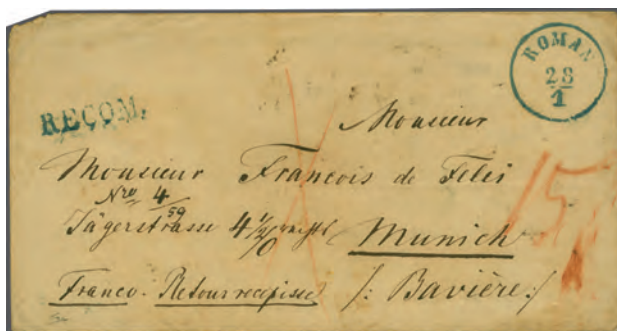 ROMAN
28
1
RECOM.
Monsieur
Monsieur François de Filei
Nro 4
59
Jägerstrasse 4 1/2/0 rechts
Munich
15
Franco. Retourrecepisse /: Bavière :/